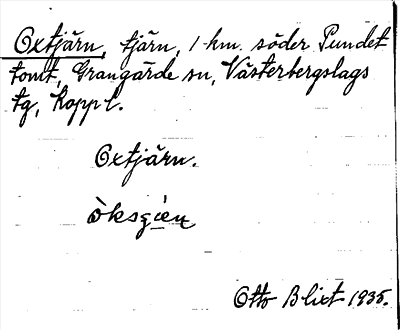 Oxtjärn, tjärn, 1 km. söder Pundet
tomt, Grangärde sn, Västerbergslags
tg, Koppl.
Oxtjärn.
Otto Blixt 1935.